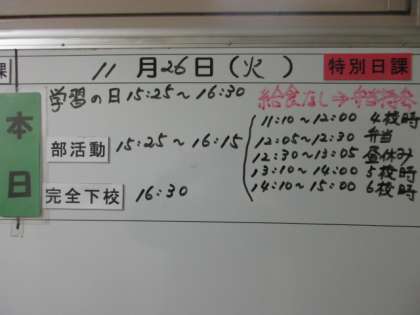 課 11月26日(火) 特別日課
本日
学習の日 15:25〜16:30
部活動 15:25〜16:15
完全下校 16:30
給食なし→弁当持参
11:10〜12:00 4校時
12:05〜12:30 弁当
12:30〜13:05 昼休み
13:10〜14:00 5校時
14:10〜15:00 6校時